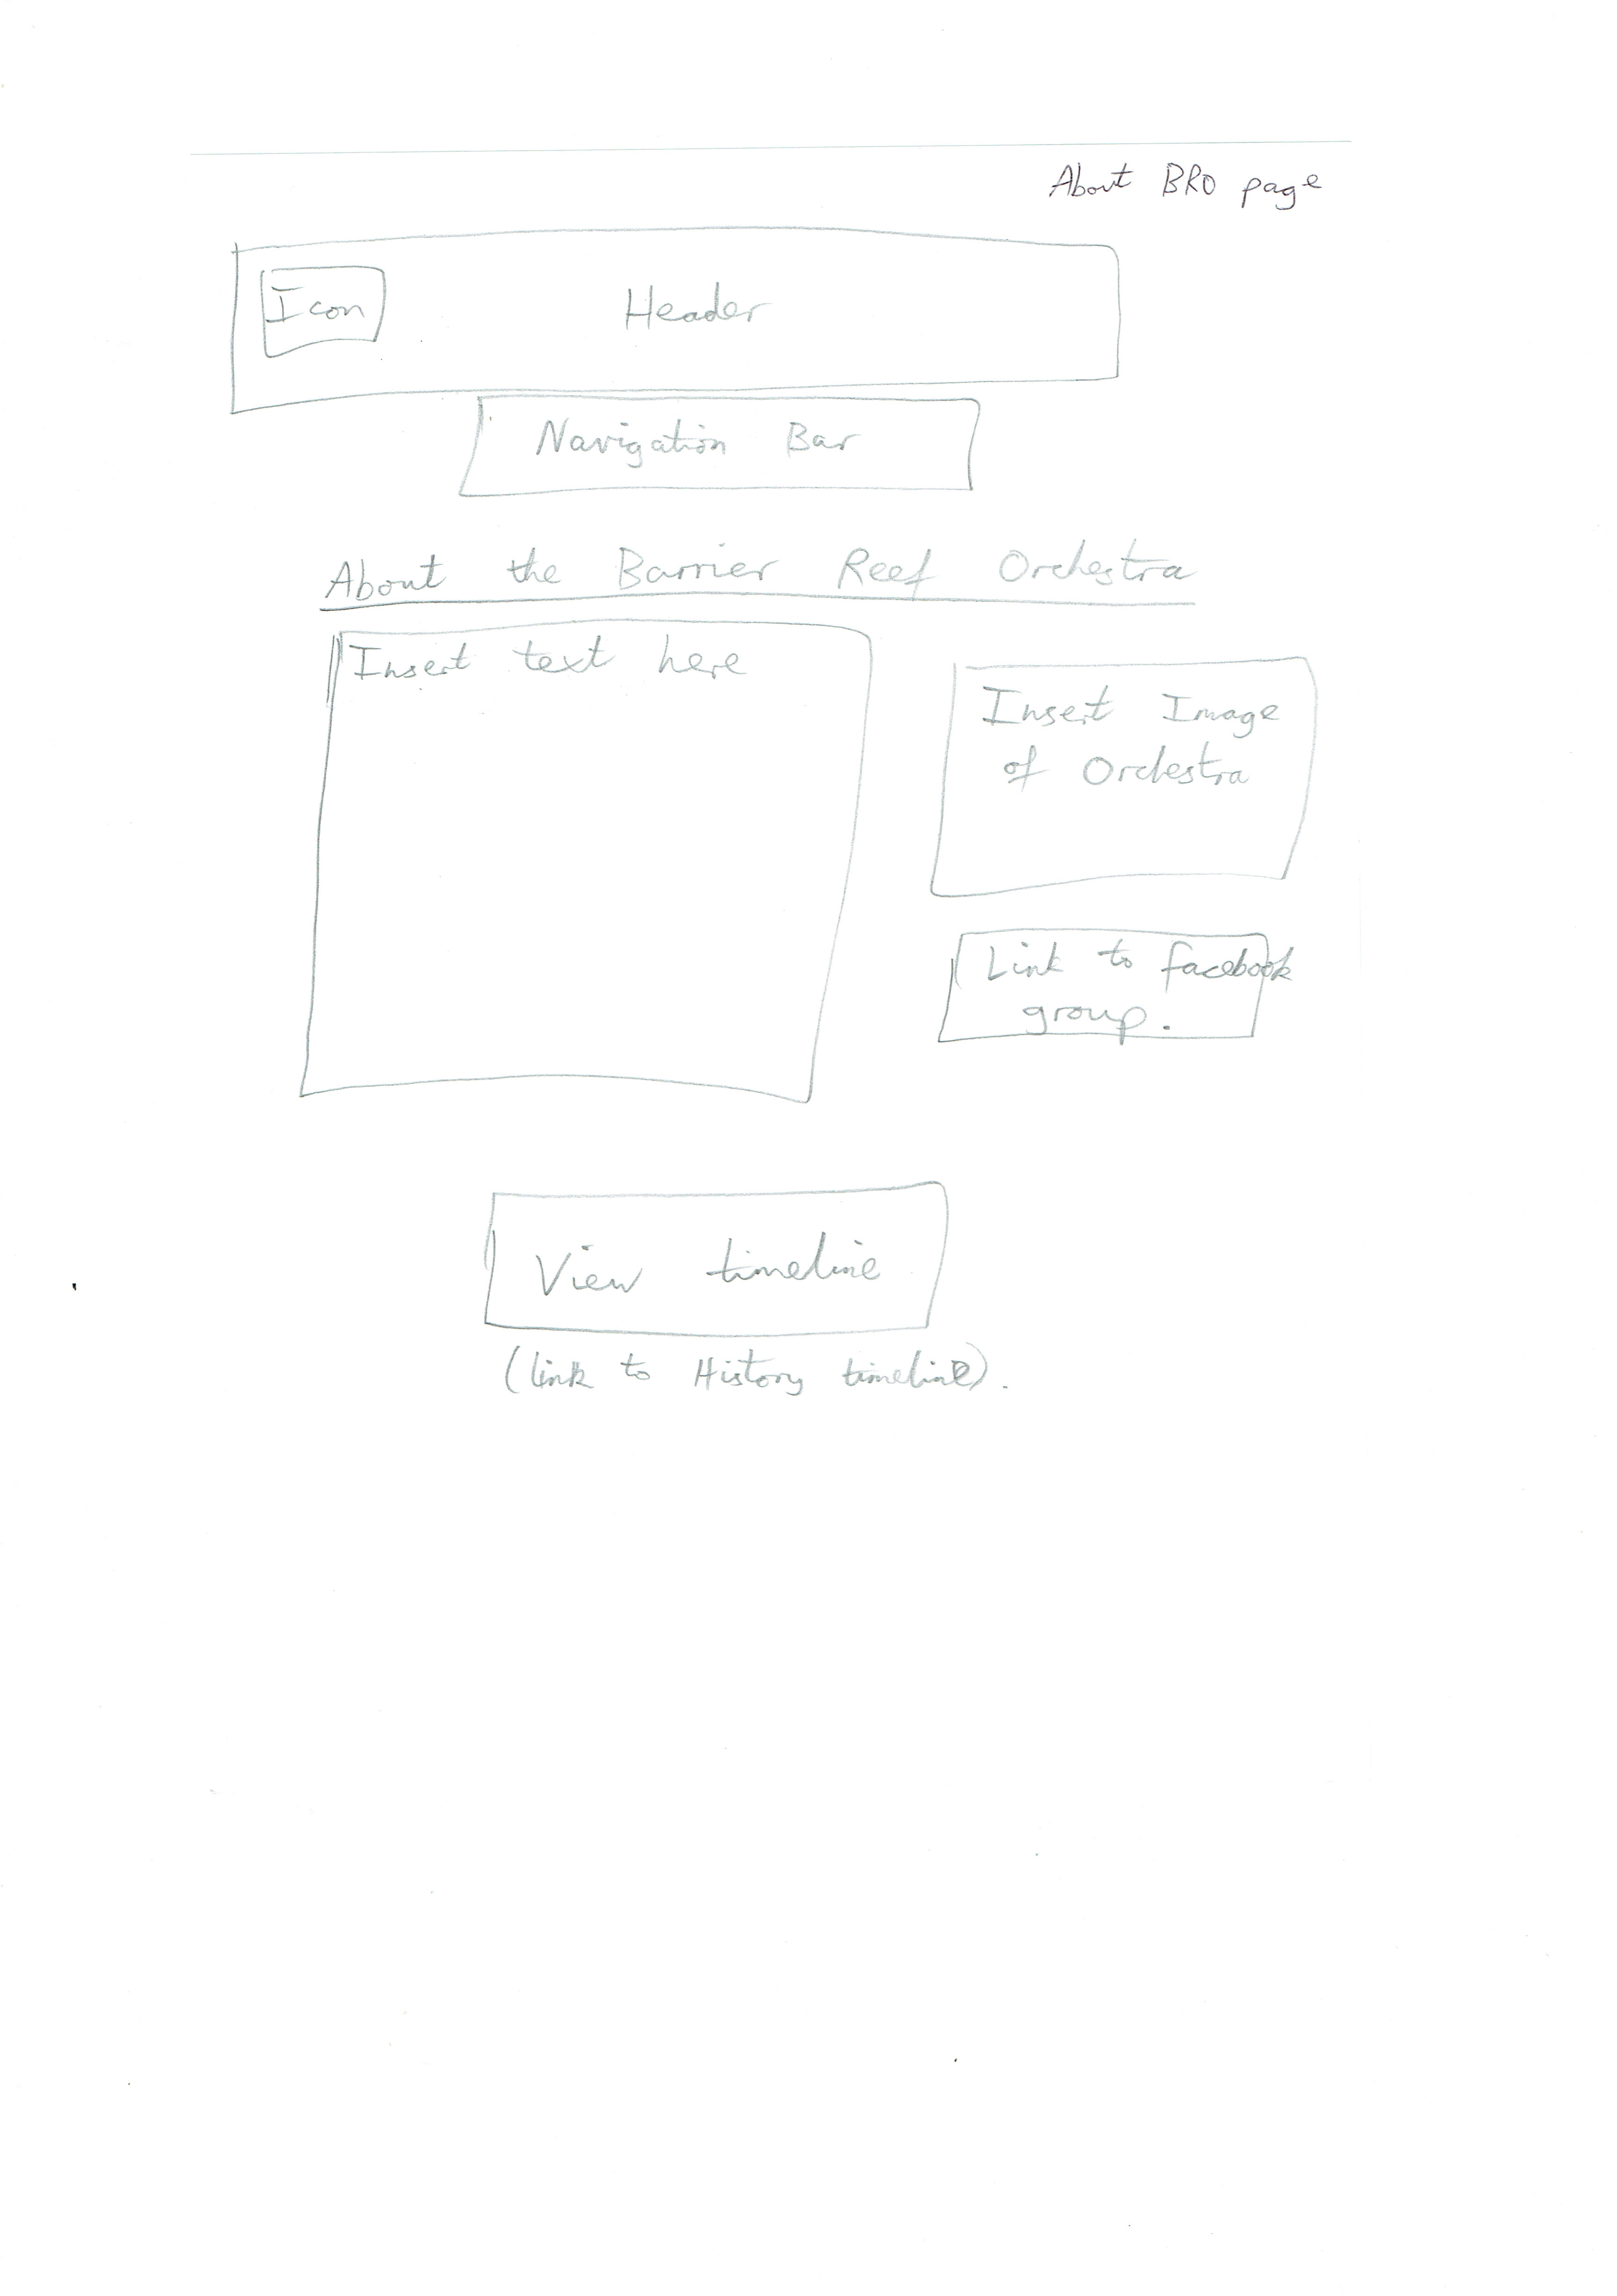 About BRO page
Icon
Header
Navigation Bar
About the Barrier Reef Orchestra
Insert text here
Insert Image
of Orchestra
Link to facebook
group.
View timeline
(link to History timeline).